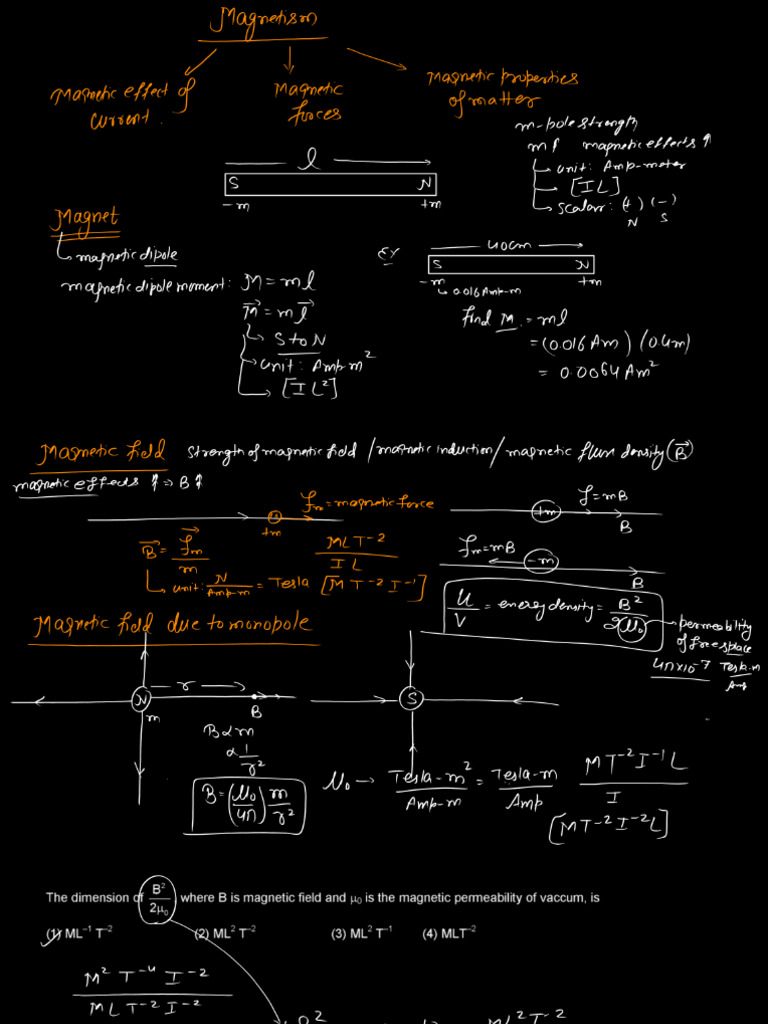 Magnetism
Magnetic effect of current.
Magnetic forces
Magnetic properties of matter
m-pole strength
m↑ magnetic effects ↑
unit: Amp-meter
[IL]
scalar: (+) (-)
N S
l
S N
-m +m
Magnet
magnetic dipole
magnetic dipole moment: M = ml
M⃗ = m l⃗
S to N
unit: Amp-m²
[IL²]
Ex
40cm
S N
-m +m
0.016 Amp-m
Find M = ml
= (0.016 Am) (0.4m)
= 0.0064 Am²
Magnetic field strength of magnetic field / magnetic induction / magnetic flux density (B⃗)
magnetic effects ↑ ⇒ B ↑
fm = magnetic force
+m
B⃗ = f⃗m / m
unit: N / Amp-m = Tesla
MLT⁻² / IL
[MT⁻²I⁻¹]
+m f = mB
B
fm = mB -m
B
U/V = energy density = B²/2μ₀
permeability of free space
4π×10⁻⁷ Tesla-m / Amp
Magnetic field due to monopole
N r
m B
B ∝ m
∝ 1/r²
B = (μ₀/4π) m/r²
S
μ₀ → Tesla-m² / Amp-m = Tesla-m / Amp
MT⁻²I⁻¹L / I
[MT⁻²I⁻²L]
The dimension of B²/2μ₀ where B is magnetic field and μ₀ is the magnetic permeability of vaccum, is
(1) ML⁻¹ T⁻² (2) ML² T⁻² (3) ML² T⁻¹ (4) MLT⁻²
M² T⁻⁴ I⁻² / ML T⁻² I⁻²
B²
ML²T⁻²